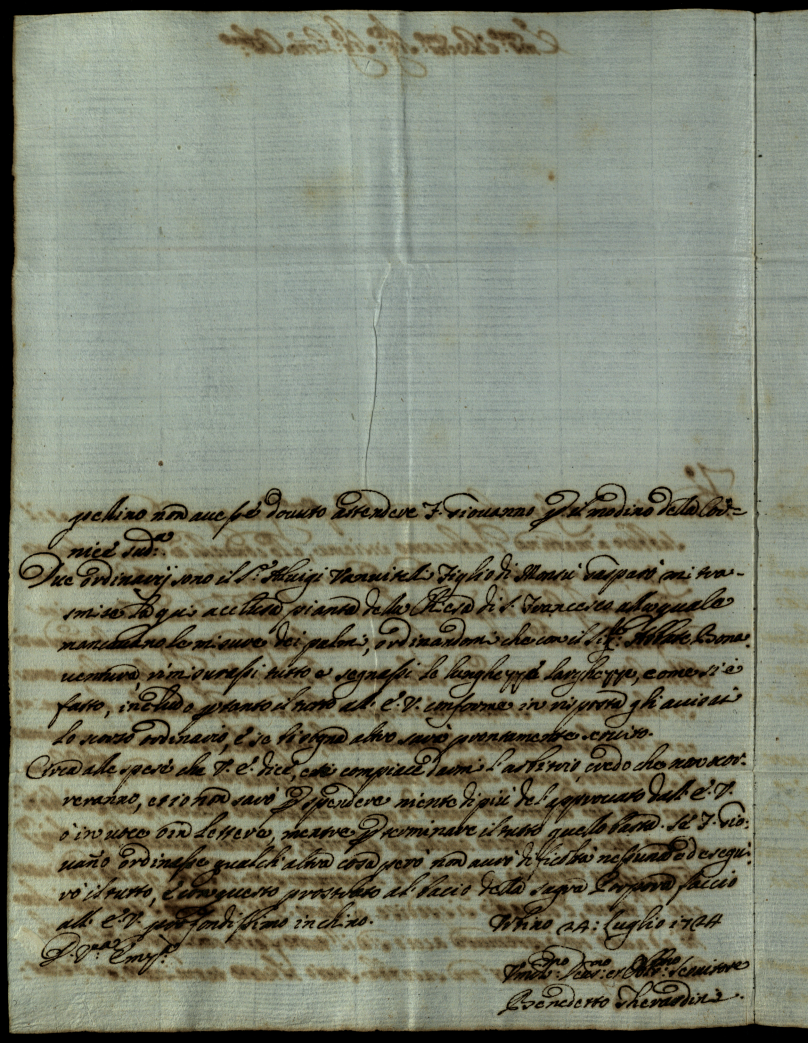 pellino non avesse dovuto attendere F. Giovanno p il modino della Cor=
nice Sud.ª
Due ordinarij sono il S.r Aluigi Vanvitelli Figlio di Monsù Gasparo mi tra-
smise la qui acclusa pianta della Chiesa di S. Francesco alla quale
mancavano le misure dei palmi, ordinandomi che con il S.r Abbate Bona
ventura rimisurassi tutto e segnassi le lunghezze larghezze, e come si è
fatto, includo p tanto il tutto all' E. V. conforme in risposta gli avvisai
lo scorso ordinario, e se bisogna altro sarà prontamente servito.
Circa alle spese che V. E. dice, essi compiace darmi l'arbitrio, credo che non occor=
reranno, et io non sarò p spendere niente di più del approvato dall' E. V.
ò in voce ò in lettere, mentre p terminare il tutto quello basta. Se F. Gio:
vano ordinasse qualch'altra cosa però non avrò dificoltà nessuna ed esegui-
rò il tutto, e con questo prostrato al bacio della sagra Porpora faccio
all' E. V. profondissimo inchino.
Urbino 24: Luglio 1724
D. V.ra Em.za
Umil.mo Dev.mo et Obb.mo Servitore
Benedetto Gherardini.